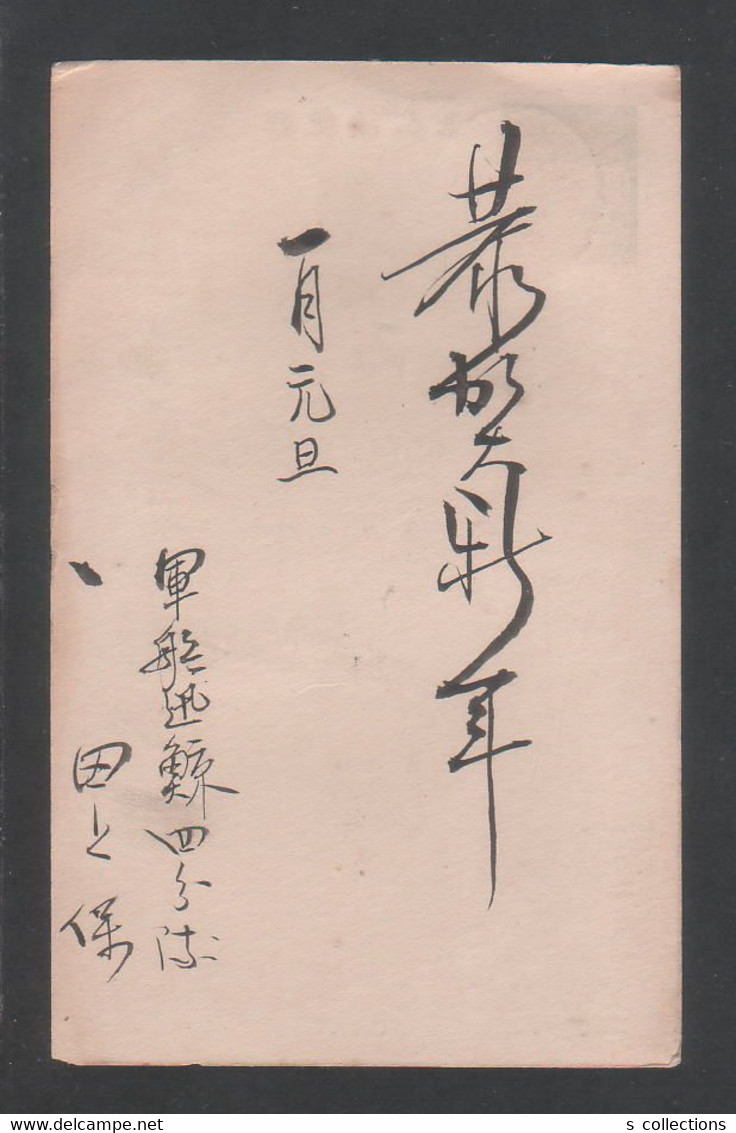 恭賀新年
一月元旦
軍艦迅鯨四分隊
田上保
s collections